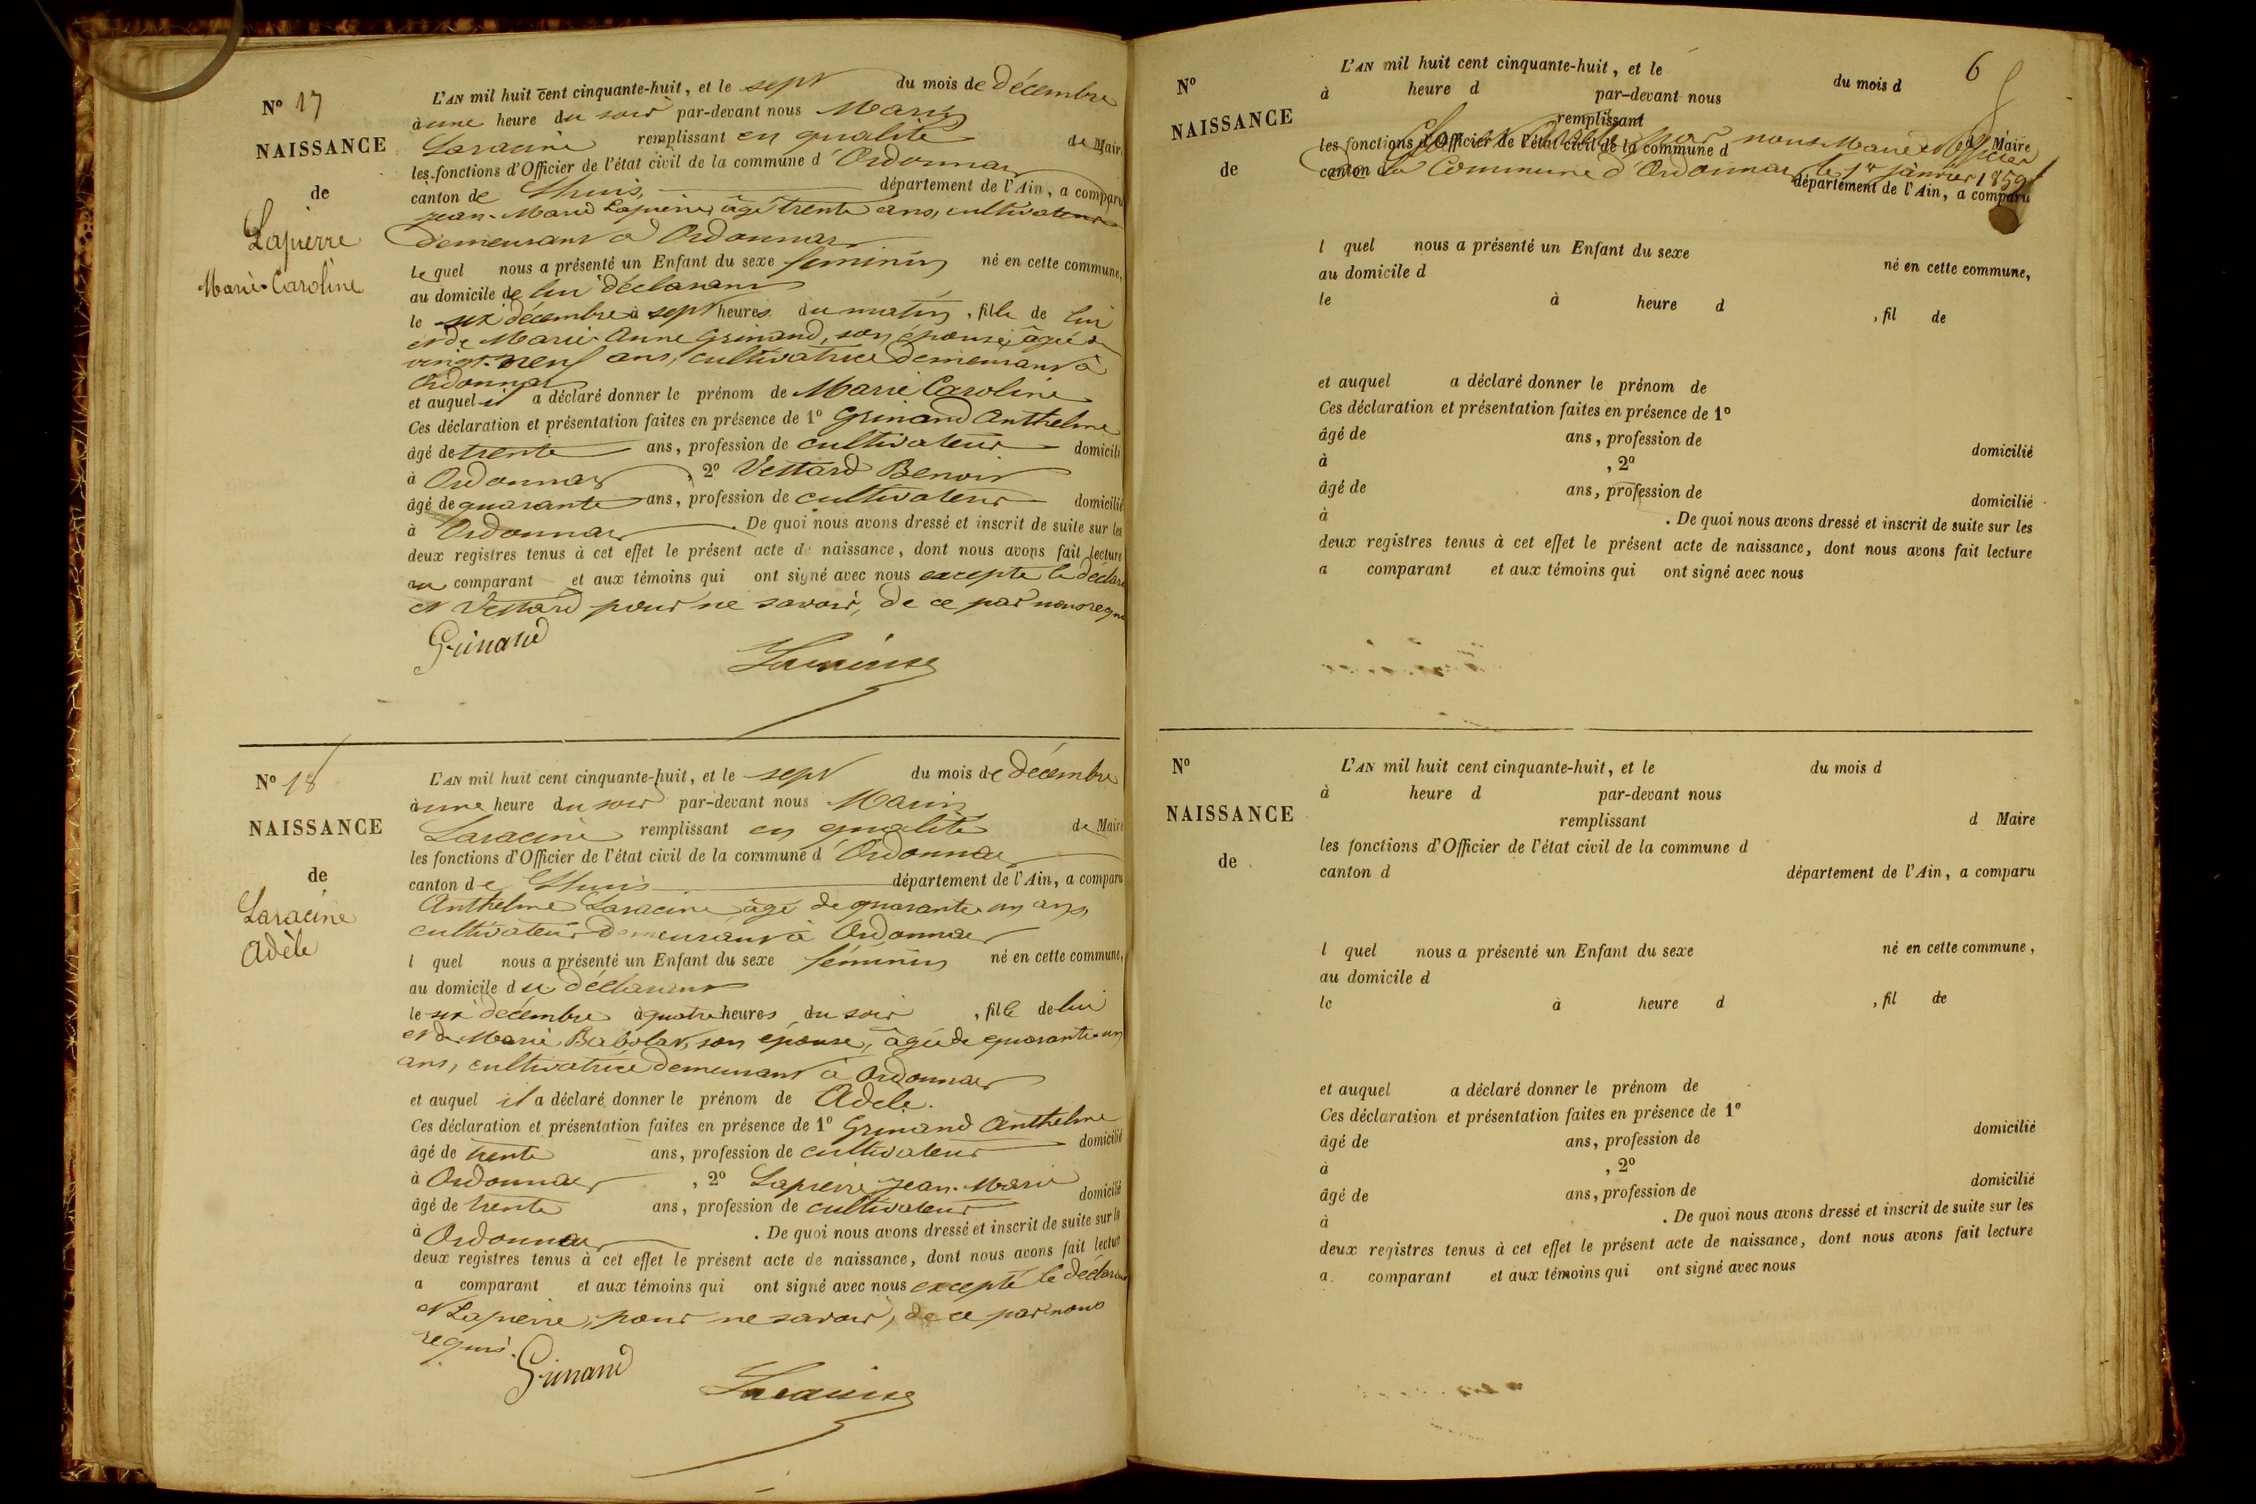 N° 17
NAISSANCE
de
Lapierre
Marie Caroline
L'AN mil huit cent cinquante-huit, et le sept du mois de décembre
à une heure du soir par-devant nous Marin
Laracine remplissant en qualité de Maire
les fonctions d'Officier de l'état civil de la commune d'Ordonnaz
canton de Lhuis, département de l'Ain, a comparu
Jean-Marie Lapierre, âgé trente ans, cultivateur
demeurant à Ordonnaz
le quel nous a présenté un Enfant du sexe féminin né en cette commune,
au domicile de lui déclarant
le six décembre à sept heures du matin, fille de lui
et de Marie Anne Grinand, son épouse, âgée de
vingt-neuf ans, cultivatrice demeurant à
Ordonnaz
et auquel il a déclaré donner le prénom de Marie Caroline
Ces déclaration et présentation faites en présence de 1° Grinand Anthelme
âgé de trente ans, profession de cultivateur domicilié
à Ordonnaz, 2° Vettard Benoit
âgé de quarante ans, profession de cultivateur domicilié
à Ordonnaz. De quoi nous avons dressé et inscrit de suite sur les
deux registres tenus à cet effet le présent acte de naissance, dont nous avons fait lecture
au comparant et aux témoins qui ont signé avec nous excepté le déclarant
et Vettard pour ne savoir, de ce par nous requis
Grinand
Laracine
N° 18
NAISSANCE
de
Laracine
Adèle
L'AN mil huit cent cinquante-huit, et le sept du mois de décembre
à une heure du soir par-devant nous Marin
Laracine remplissant en qualité de Maire
les fonctions d'Officier de l'état civil de la commune d'Ordonnaz
canton de Lhuis département de l'Ain, a comparu
Anthelme Laracine âgé de quarante-un ans,
cultivateur demeurant à Ordonnaz
l quel nous a présenté un Enfant du sexe féminin né en cette commune,
au domicile du déclarant
le six décembre à quatre heures du soir, fille de lui
et de Marie Babolat, son épouse, âgée de quarante-un
ans, cultivatrice demeurant à Ordonnaz
et auquel il a déclaré donner le prénom de Adele.
Ces déclaration et présentation faites en présence de 1° Grinand Anthelme
âgé de trente ans, profession de cultivateur domicilié
à Ordonnaz, 2° Lapierre Jean-Marie
âgé de trente ans, profession de cultivateur domicilié
à Ordonnaz. De quoi nous avons dressé et inscrit de suite sur les
deux registres tenus à cet effet le présent acte de naissance, dont nous avons fait lecture
a comparant et aux témoins qui ont signé avec nous excepté le déclarant
et Lapierre, pour ne savoir, de ce par nous
requis.
Grinand
Laracine
6
N°
NAISSANCE
de
L'AN mil huit cent cinquante-huit, et le du mois d
à heure d par-devant nous
remplissant d Maire
les fonctions d'Officier de l'état civil de la commune d
par nous Maire Officier
canton d département de l'Ain, a comparu
de la Commune d'Ordonnaz le 1er janvier 1859
l quel nous a présenté un Enfant du sexe né en cette commune,
au domicile d
le à heure d, fil de
et auquel a déclaré donner le prénom de
Ces déclaration et présentation faites en présence de 1°
âgé de ans, profession de domicilié
à, 2°
âgé de ans, profession de domicilié
à. De quoi nous avons dressé et inscrit de suite sur les
deux registres tenus à cet effet le présent acte de naissance, dont nous avons fait lecture
a comparant et aux témoins qui ont signé avec nous
N°
NAISSANCE
de
L'AN mil huit cent cinquante-huit, et le du mois d
à heure d par-devant nous
remplissant d Maire
les fonctions d'Officier de l'état civil de la commune d
canton d département de l'Ain, a comparu
l quel nous a présenté un Enfant du sexe né en cette commune,
au domicile d
le à heure d, fil de
et auquel a déclaré donner le prénom de
Ces déclaration et présentation faites en présence de 1°
âgé de ans, profession de domicilié
à, 2°
âgé de ans, profession de domicilié
à. De quoi nous avons dressé et inscrit de suite sur les
deux registres tenus à cet effet le présent acte de naissance, dont nous avons fait lecture
a comparant et aux témoins qui ont signé avec nous